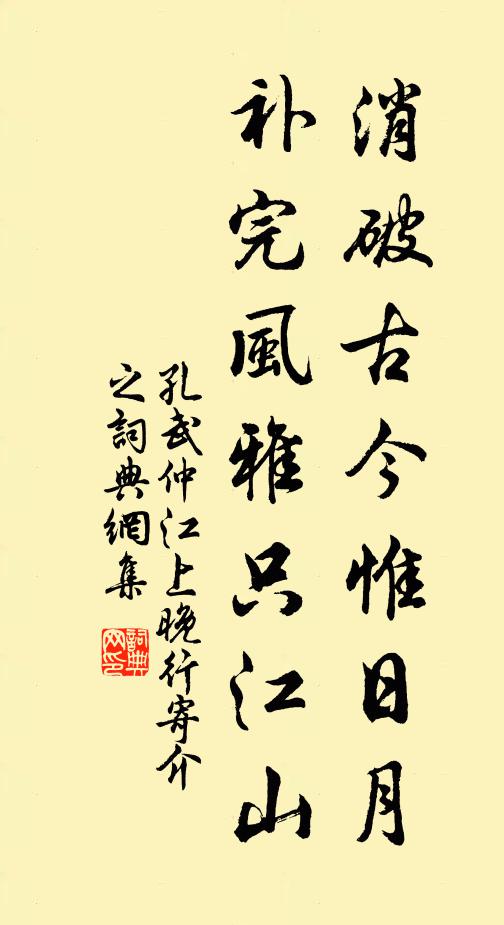 消破古今惟日月
补完風雅只江山
孔武仲江上晚行寄介
之詞典網集
詞典
网印